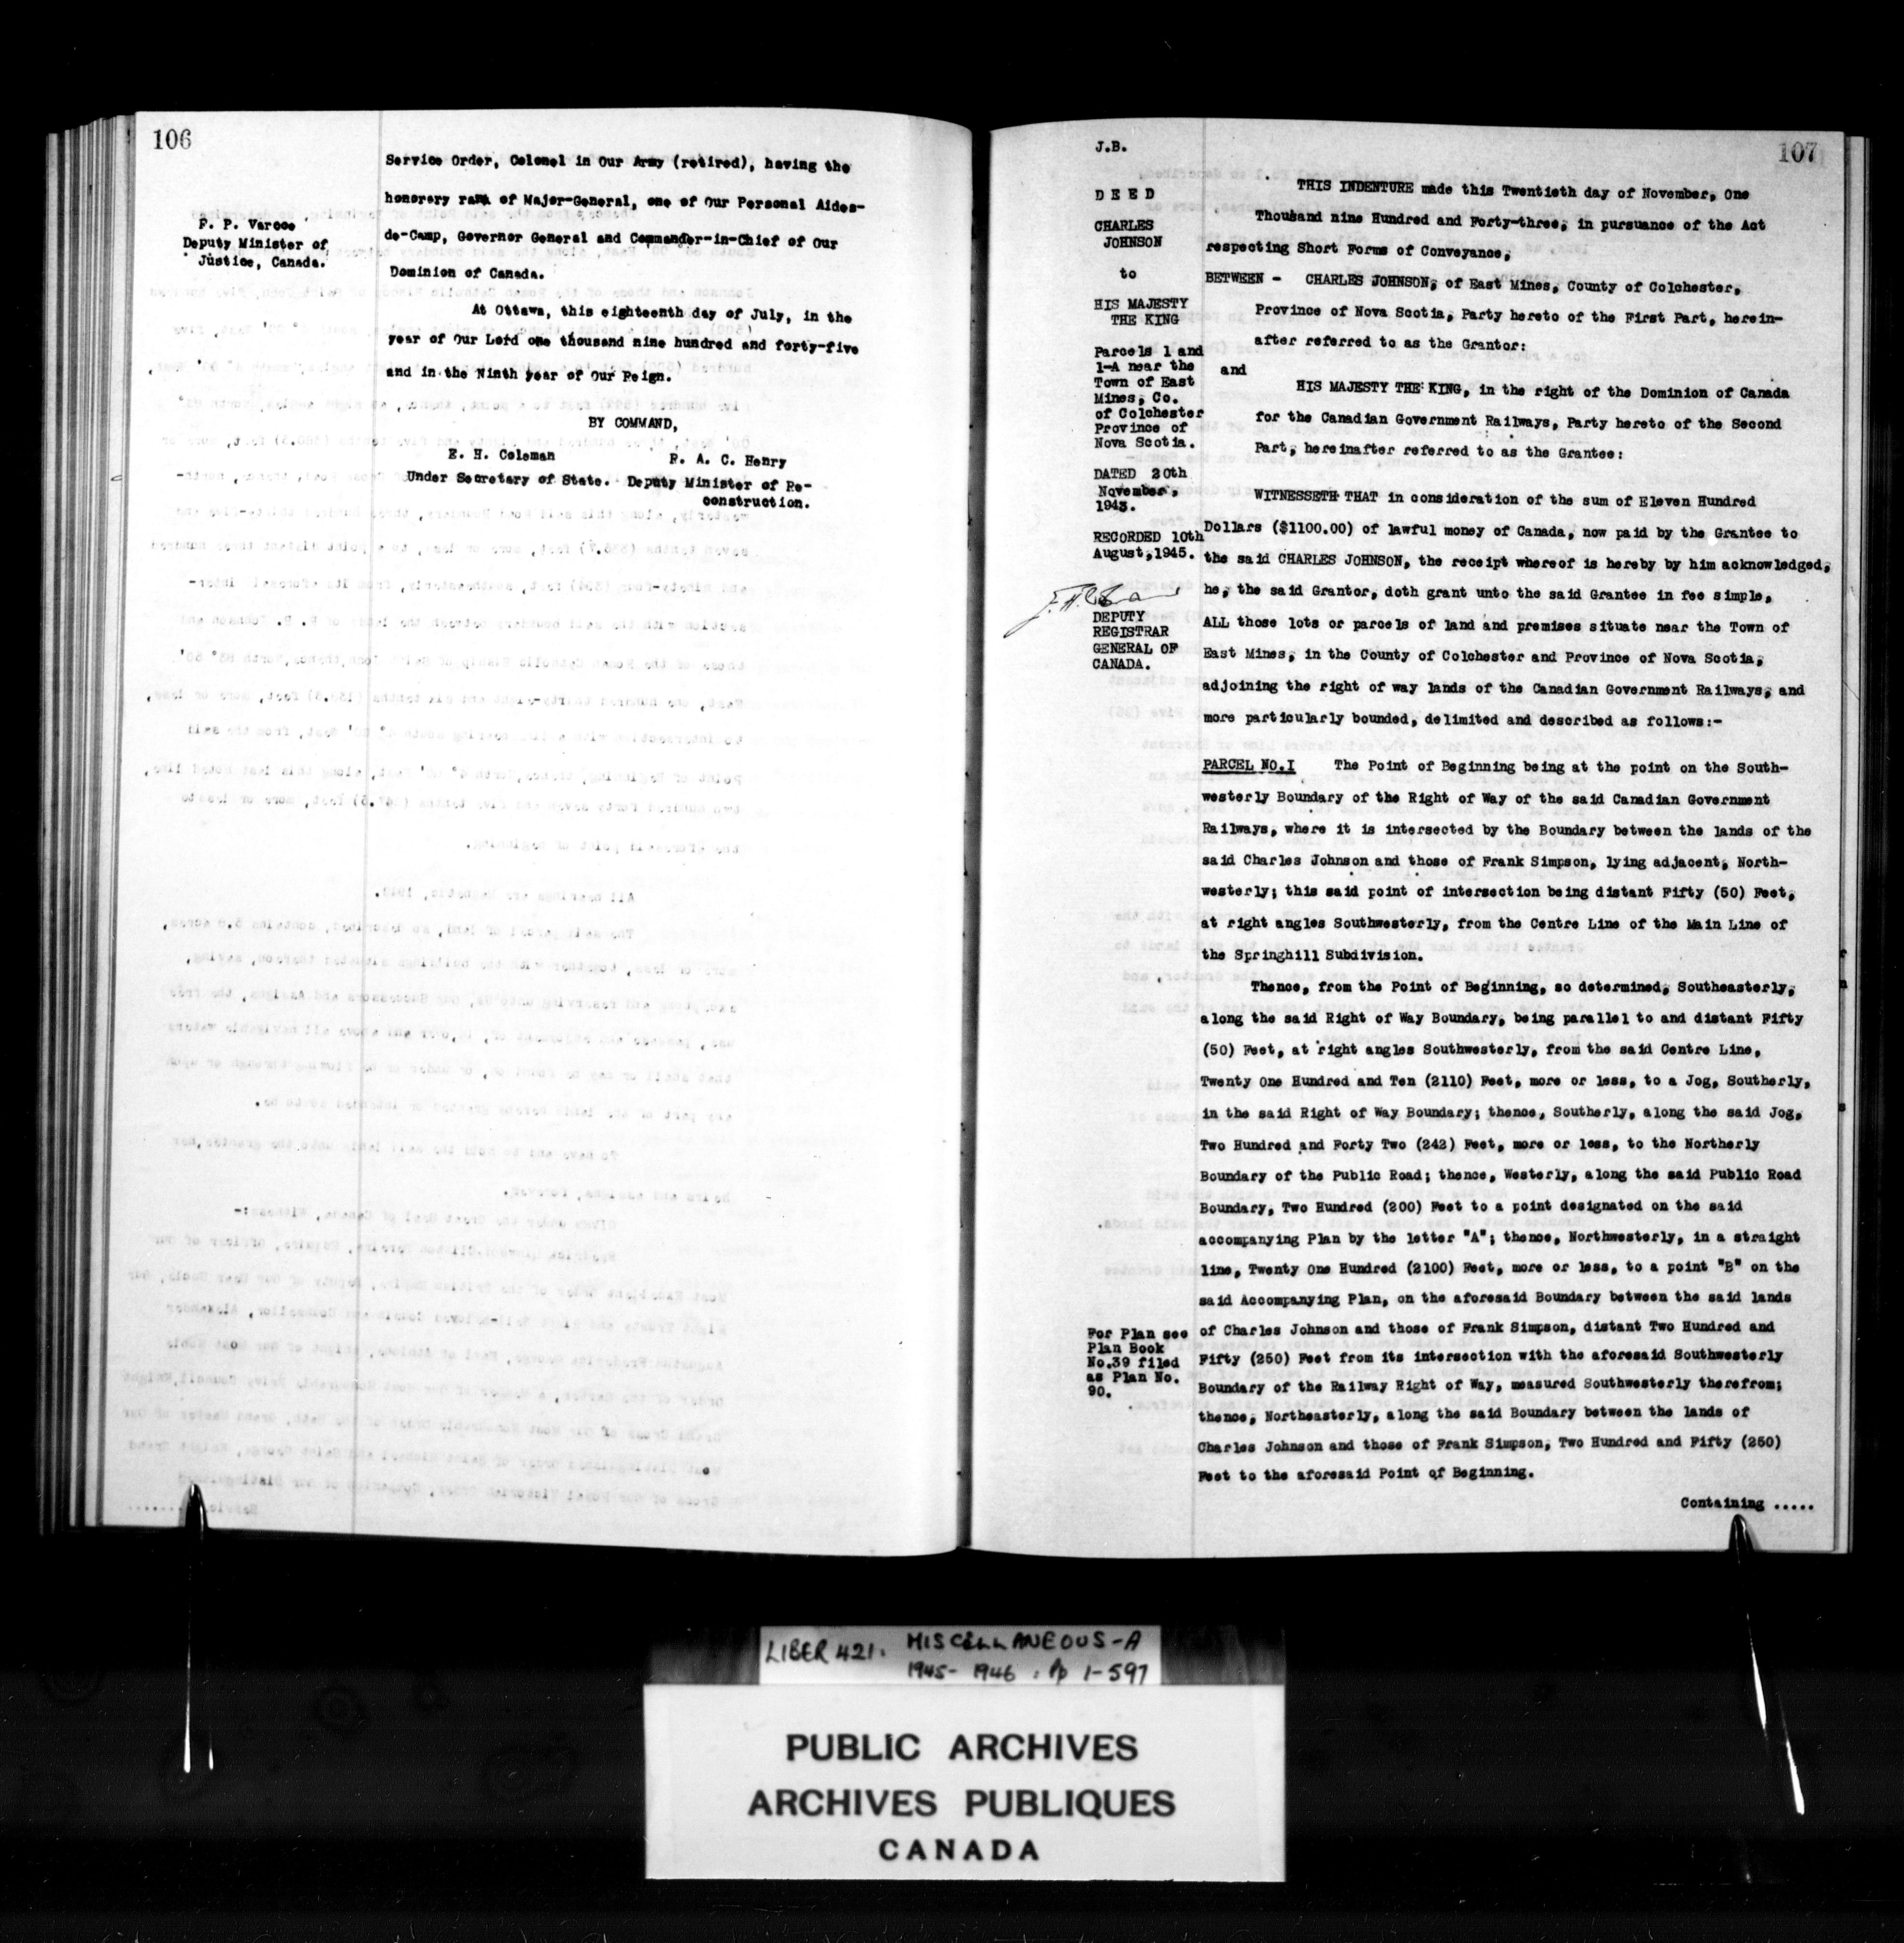 106
Service Order, Colonel in Our Army (retired), having the
honorary rank of Major-General, one of Our Personal Aides-
de-Camp, Governor General and Commander-in-Chief of Our
Dominion of Canada.
F. P. Varcoe
Deputy Minister of
Justice, Canada.
At Ottawa, this eighteenth day of July, in the
year of Our Lord one thousand nine hundred and forty-five
and in the Ninth year of Our Reign.
BY COMMAND,
E. H. Coleman
R. A. C. Henry
Under Secretary of State. Deputy Minister of Re-
construction.
107
J.B.
D E E D
CHARLES
JOHNSON
to
HIS MAJESTY
THE KING
Parcels 1 and
1-A near the
Town of East
Mines, Co.
of Colchester
Province of
Nova Scotia.
DATED 20th
November,
1943.
RECORDED 10th
August,1945.
DEPUTY
REGISTRAR
GENERAL OF
CANADA.
THIS INDENTURE made this Twentieth day of November, One
Thousand nine Hundred and Forty-three, in pursuance of the Act
respecting Short Forms of Conveyance,
BETWEEN - CHARLES JOHNSON, of East Mines, County of Colchester,
Province of Nova Scotia, Party hereto of the First Part, herein-
after referred to as the Grantor:
and
HIS MAJESTY THE KING, in the right of the Dominion of Canada
for the Canadian Government Railways, Party hereto of the Second
Part, hereinafter referred to as the Grantee:
WITNESSETH THAT in consideration of the sum of Eleven Hundred
Dollars ($1100.00) of lawful money of Canada, now paid by the Grantee to
the said CHARLES JOHNSON, the receipt whereof is hereby by him acknowledged,
he, the said Grantor, doth grant unto the said Grantee in fee simple,
ALL those lots or parcels of land and premises situate near the Town of
East Mines, in the County of Colchester and Province of Nova Scotia,
adjoining the right of way lands of the Canadian Government Railways, and
more particularly bounded, delimited and described as follows:-
PARCEL NO.I The Point of Beginning being at the point on the South-
westerly Boundary of the Right of Way of the said Canadian Government
Railways, where it is intersected by the Boundary between the lands of the
said Charles Johnson and those of Frank Simpson, lying adjacent, North-
westerly; this said point of intersection being distant Fifty (50) Feet,
at right angles Southwesterly, from the Centre Line of the Main Line of
the Springhill Subdivision.
Thence, from the Point of Beginning, so determined, Southeasterly,
along the said Right of Way Boundary, being parallel to and distant Fifty
(50) Feet, at right angles Southwesterly, from the said Centre Line,
Twenty One Hundred and Ten (2110) Feet, more or less, to a Jog, Southerly,
in the said Right of Way Boundary; thence, Southerly, along the said Jog,
Two Hundred and Forty Two (242) Feet, more or less, to the Northerly
Boundary of the Public Road; thence, Westerly, along the said Public Road
Boundary, Two Hundred (200) Feet to a point designated on the said
accompanying Plan by the letter "A"; thence, Northwesterly, in a straight
line, Twenty One Hundred (2100) Feet, more or less, to a point "B" on the
said Accompanying Plan, on the aforesaid Boundary between the said lands
of Charles Johnson and those of Frank Simpson, distant Two Hundred and
Fifty (250) Feet from its intersection with the aforesaid Southwesterly
Boundary of the Railway Right of Way, measured Southwesterly therefrom;
thence, Northeasterly, along the said Boundary between the lands of
Charles Johnson and those of Frank Simpson, Two Hundred and Fifty (250)
Feet to the aforesaid Point of Beginning.
For Plan see
Plan Book
No.39 filed
as Plan No.
90.
Containing .....
LIBER 421. MISCELLANEOUS-A
1945- 1946 : Pp 1-597
PUBLIC ARCHIVES
ARCHIVES PUBLIQUES
CANADA